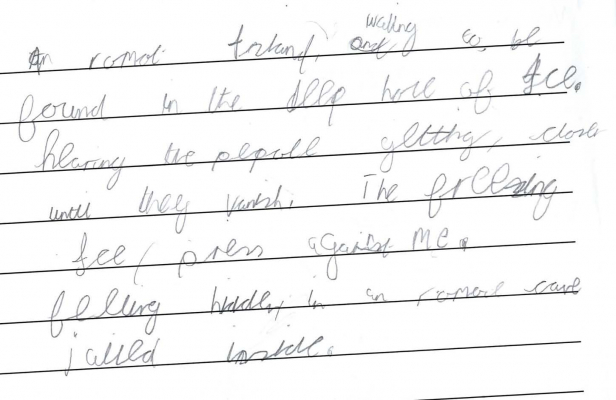 An romot Ireland, waiting to be
found in the deep hole of Ice.
hearing the pepoll getting, closer
until they vanish. The freezing
Ice, press against me.
felling hidden, in an romot cave
jailed inside.